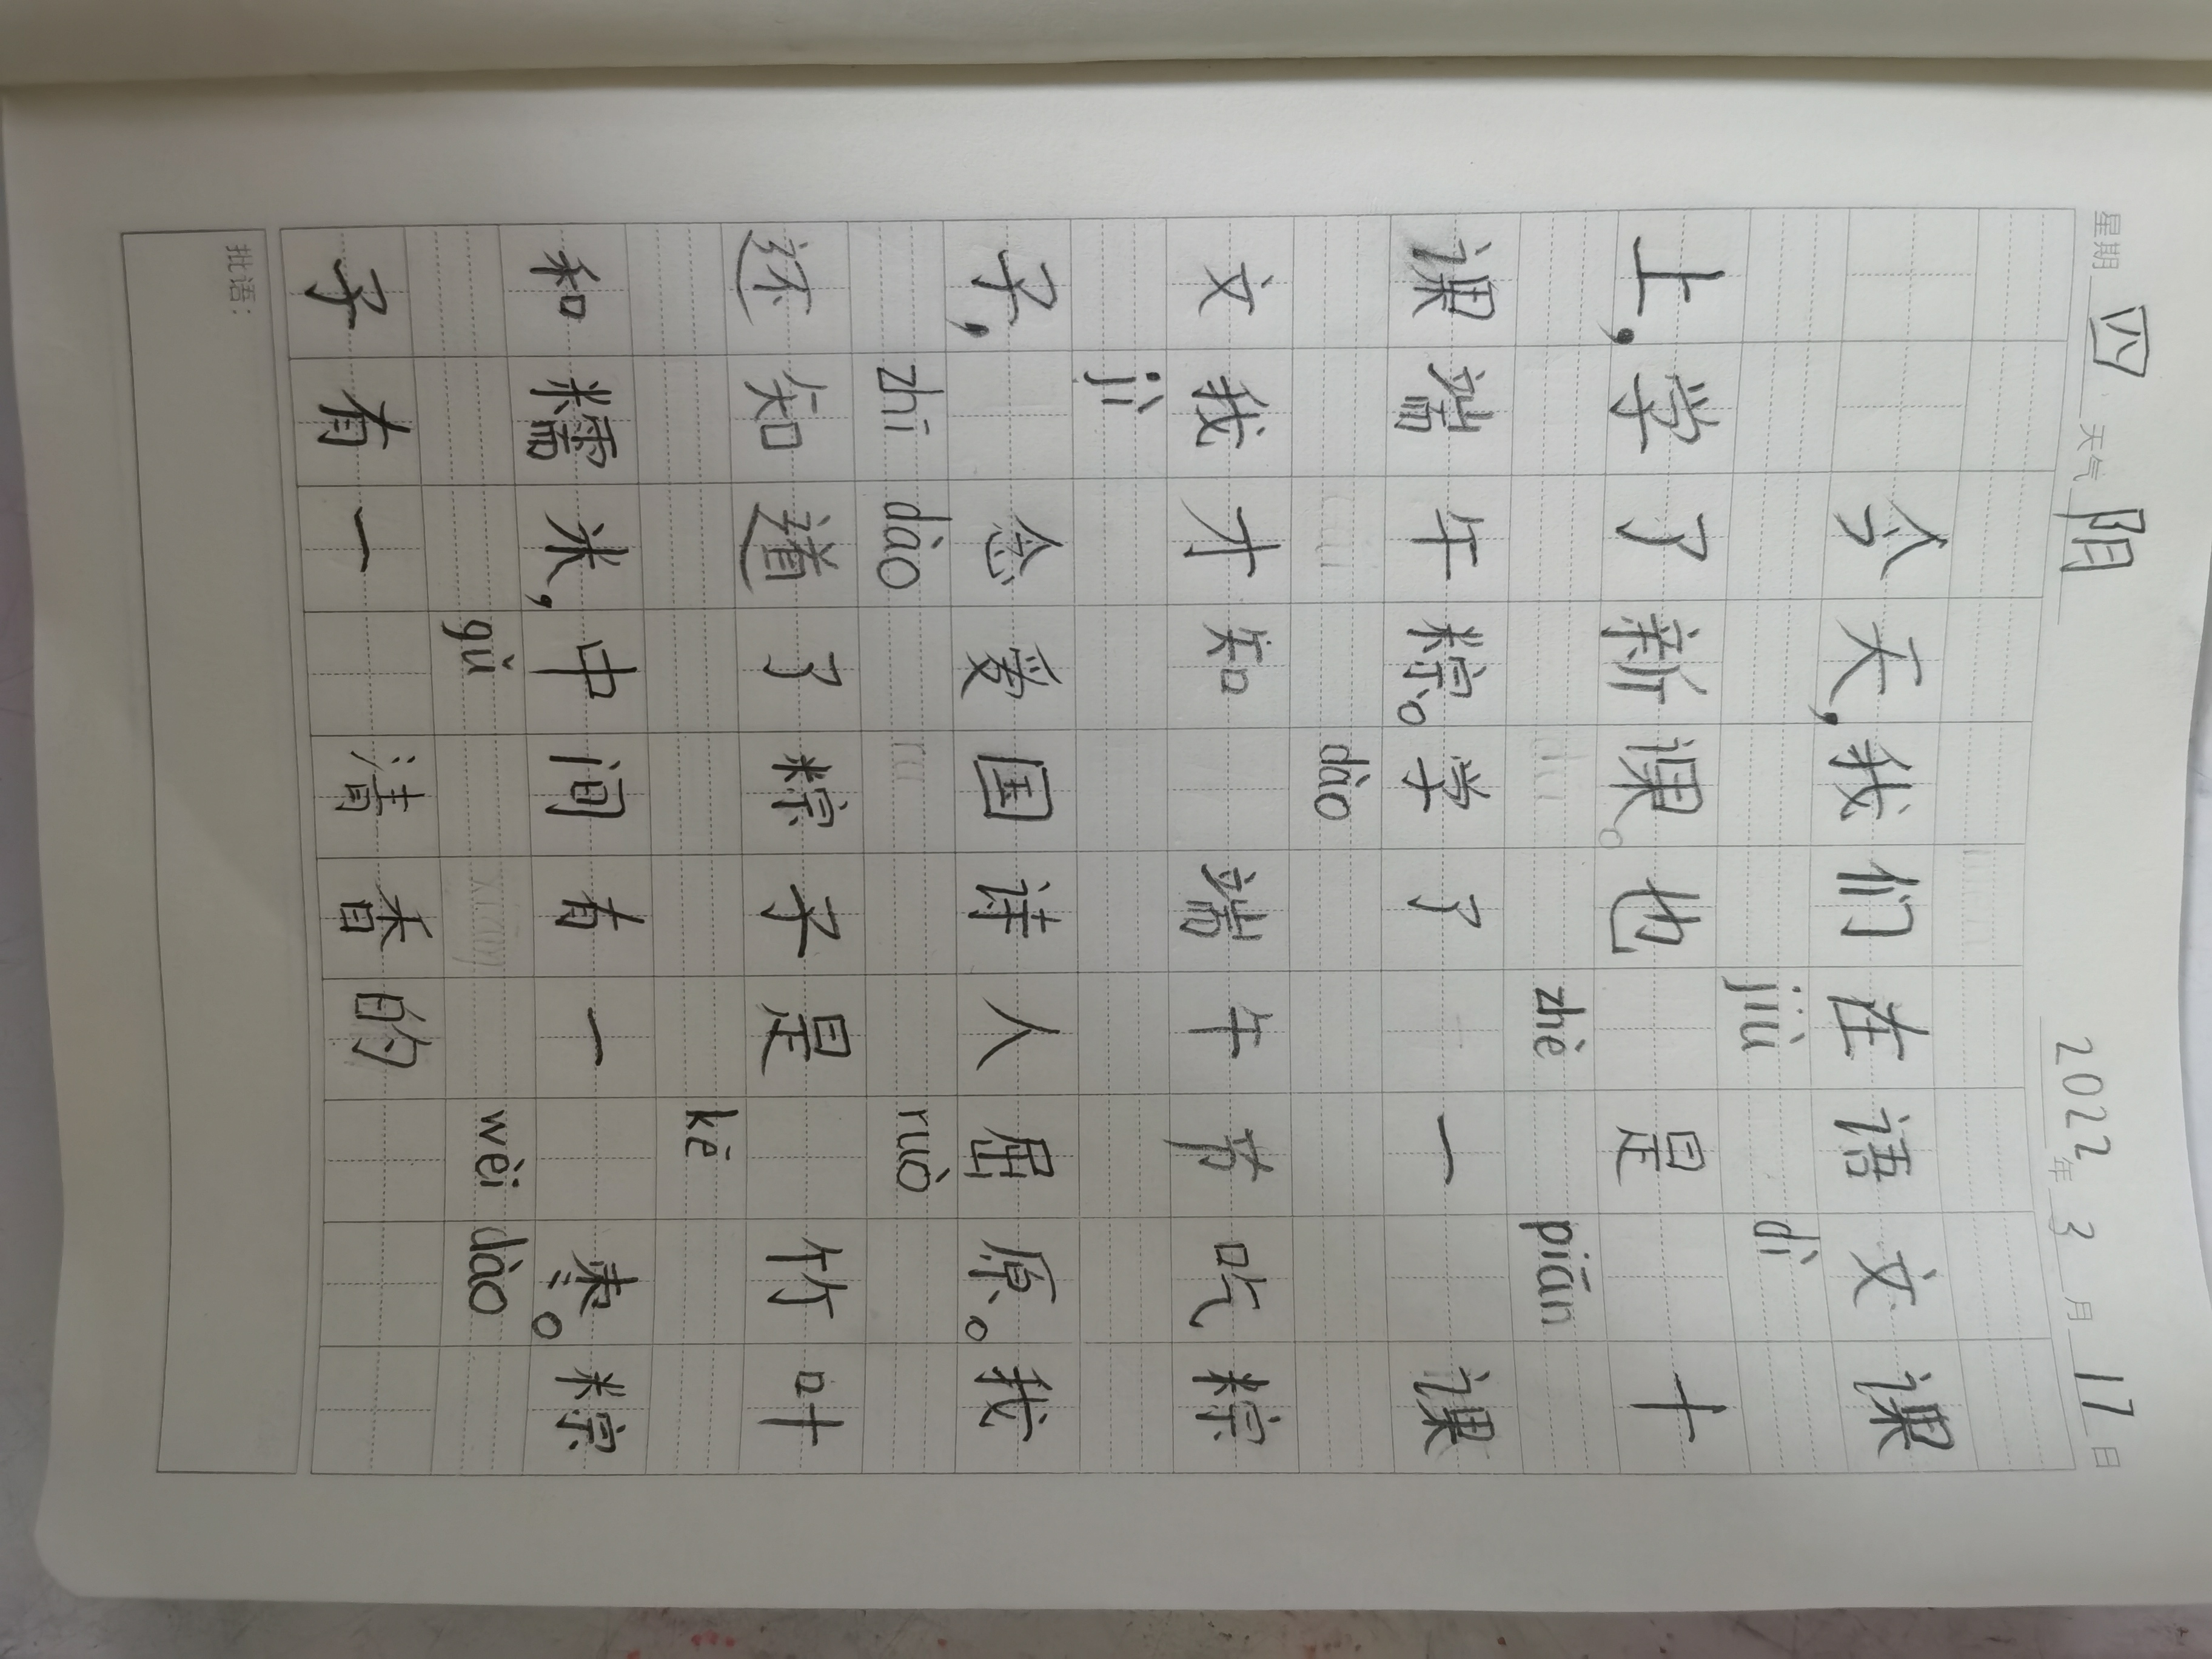 星期四 天气阴 2022年3月17日
今天,我们在语文课
jiù dì
上,学了新课。也 是 十
zhè piān
课端午粽。学了 一 课
dào
文我才知 端午节吃粽
jì
子, 念爱国诗人屈原。我
zhī dào ruò
还知道了粽子是 竹叶
kē
和糯米,中间有一 枣。粽
gǔ wèi dào
子有一 清香的
批语: